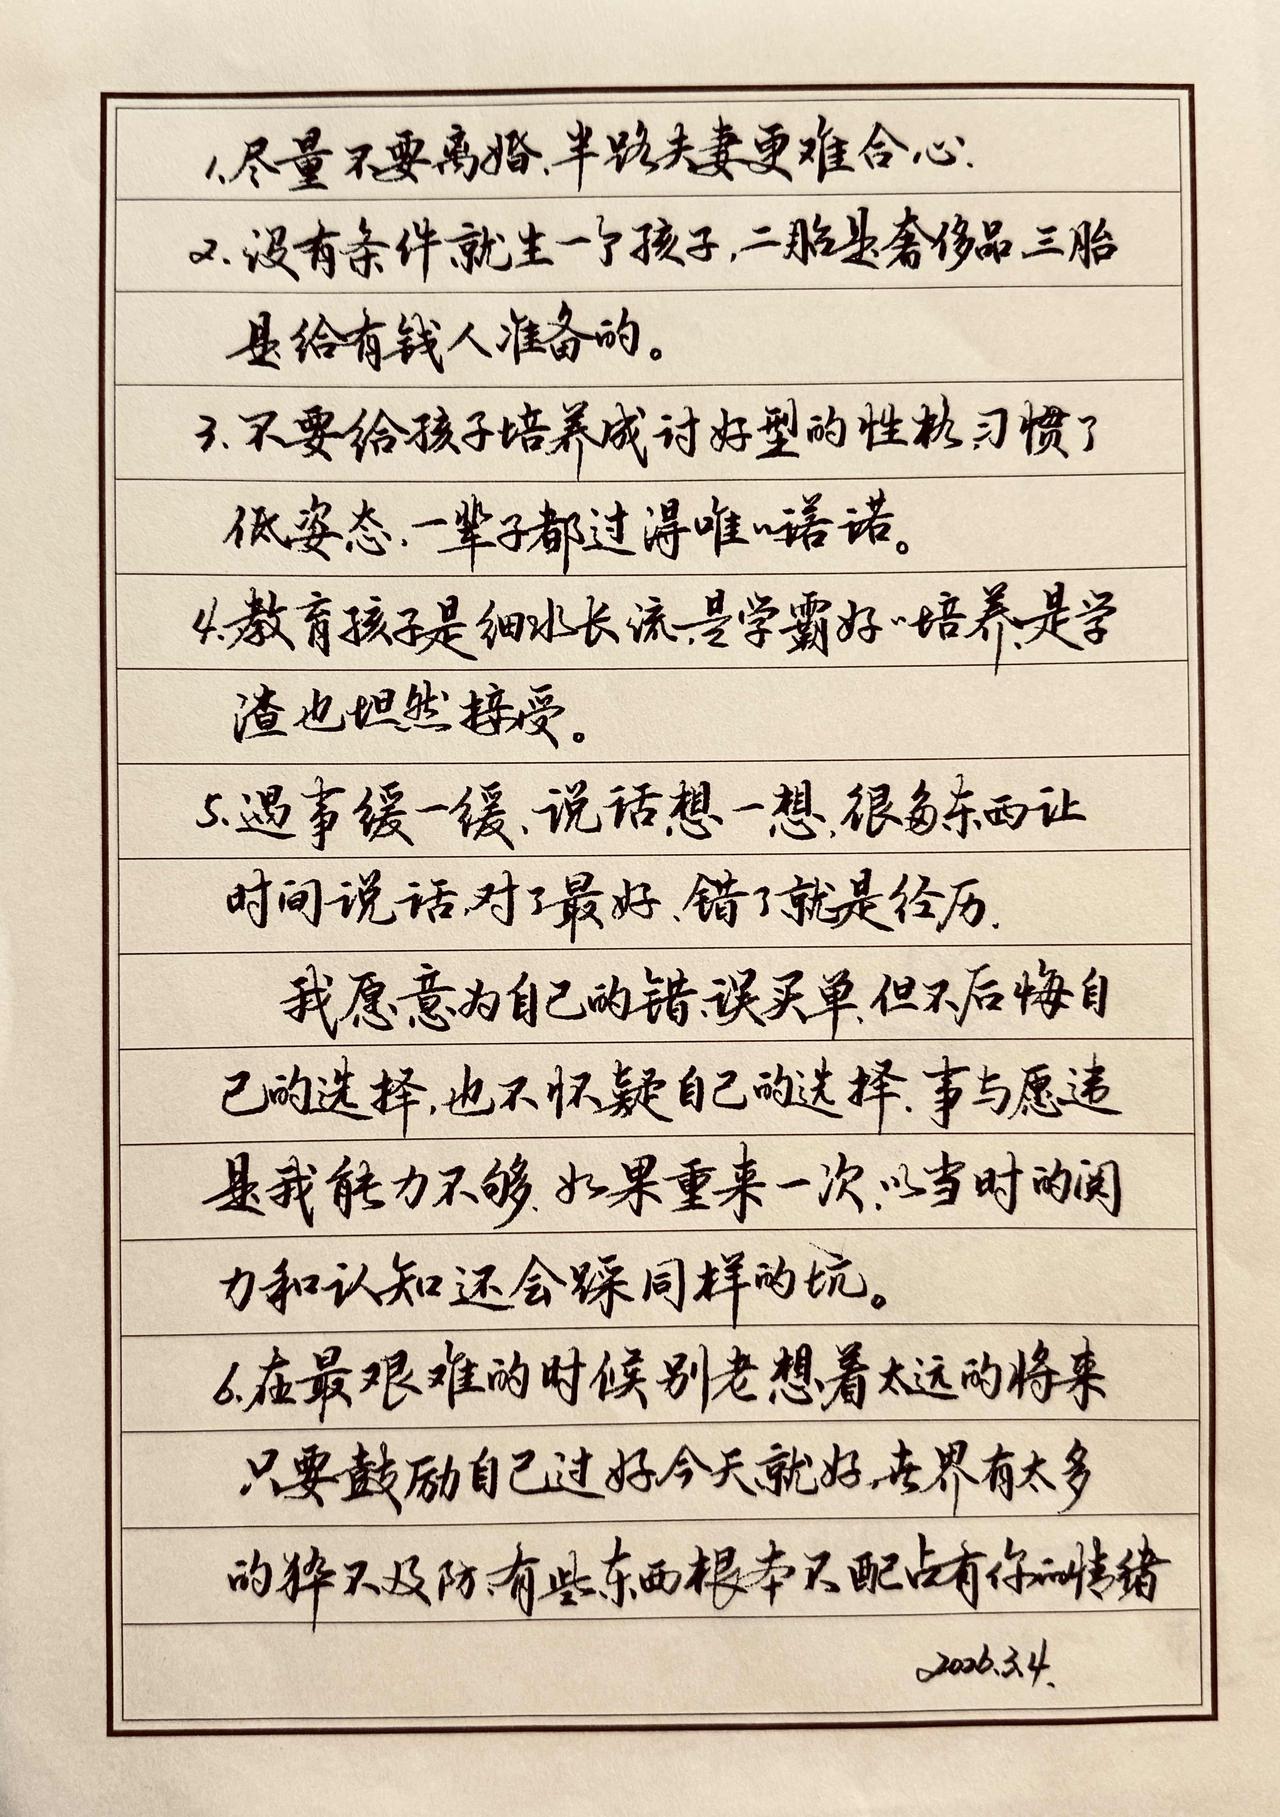 1.尽量不要离婚、半路夫妻更难合心.
2.没有条件就生一个孩子,二胎是奢侈品、三胎
是给有钱人准备的。
3.不要给孩子培养成讨好型的性格、习惯了
低姿态、一辈子都过得唯〃诺诺。
4.教育孩子是细水长流、是学霸好〃培养、是学
渣也坦然接受。
5.遇事缓一缓、说话想一想、很多东西让
时间说话、对了最好、错了就是经历.
我愿意为自己的错误买单、但不后悔自
己的选择,也不怀疑自己的选择、事与愿违
是我能力不够、如果重来一次、以当时的阅
力和认知还会踩同样的坑。
6.在最艰难的时候别老想着太远的将来
只要鼓励自己过好今天就好、世界有太多
的猝不及防、有些东西根本不配占有你的情绪
2026.3.4.